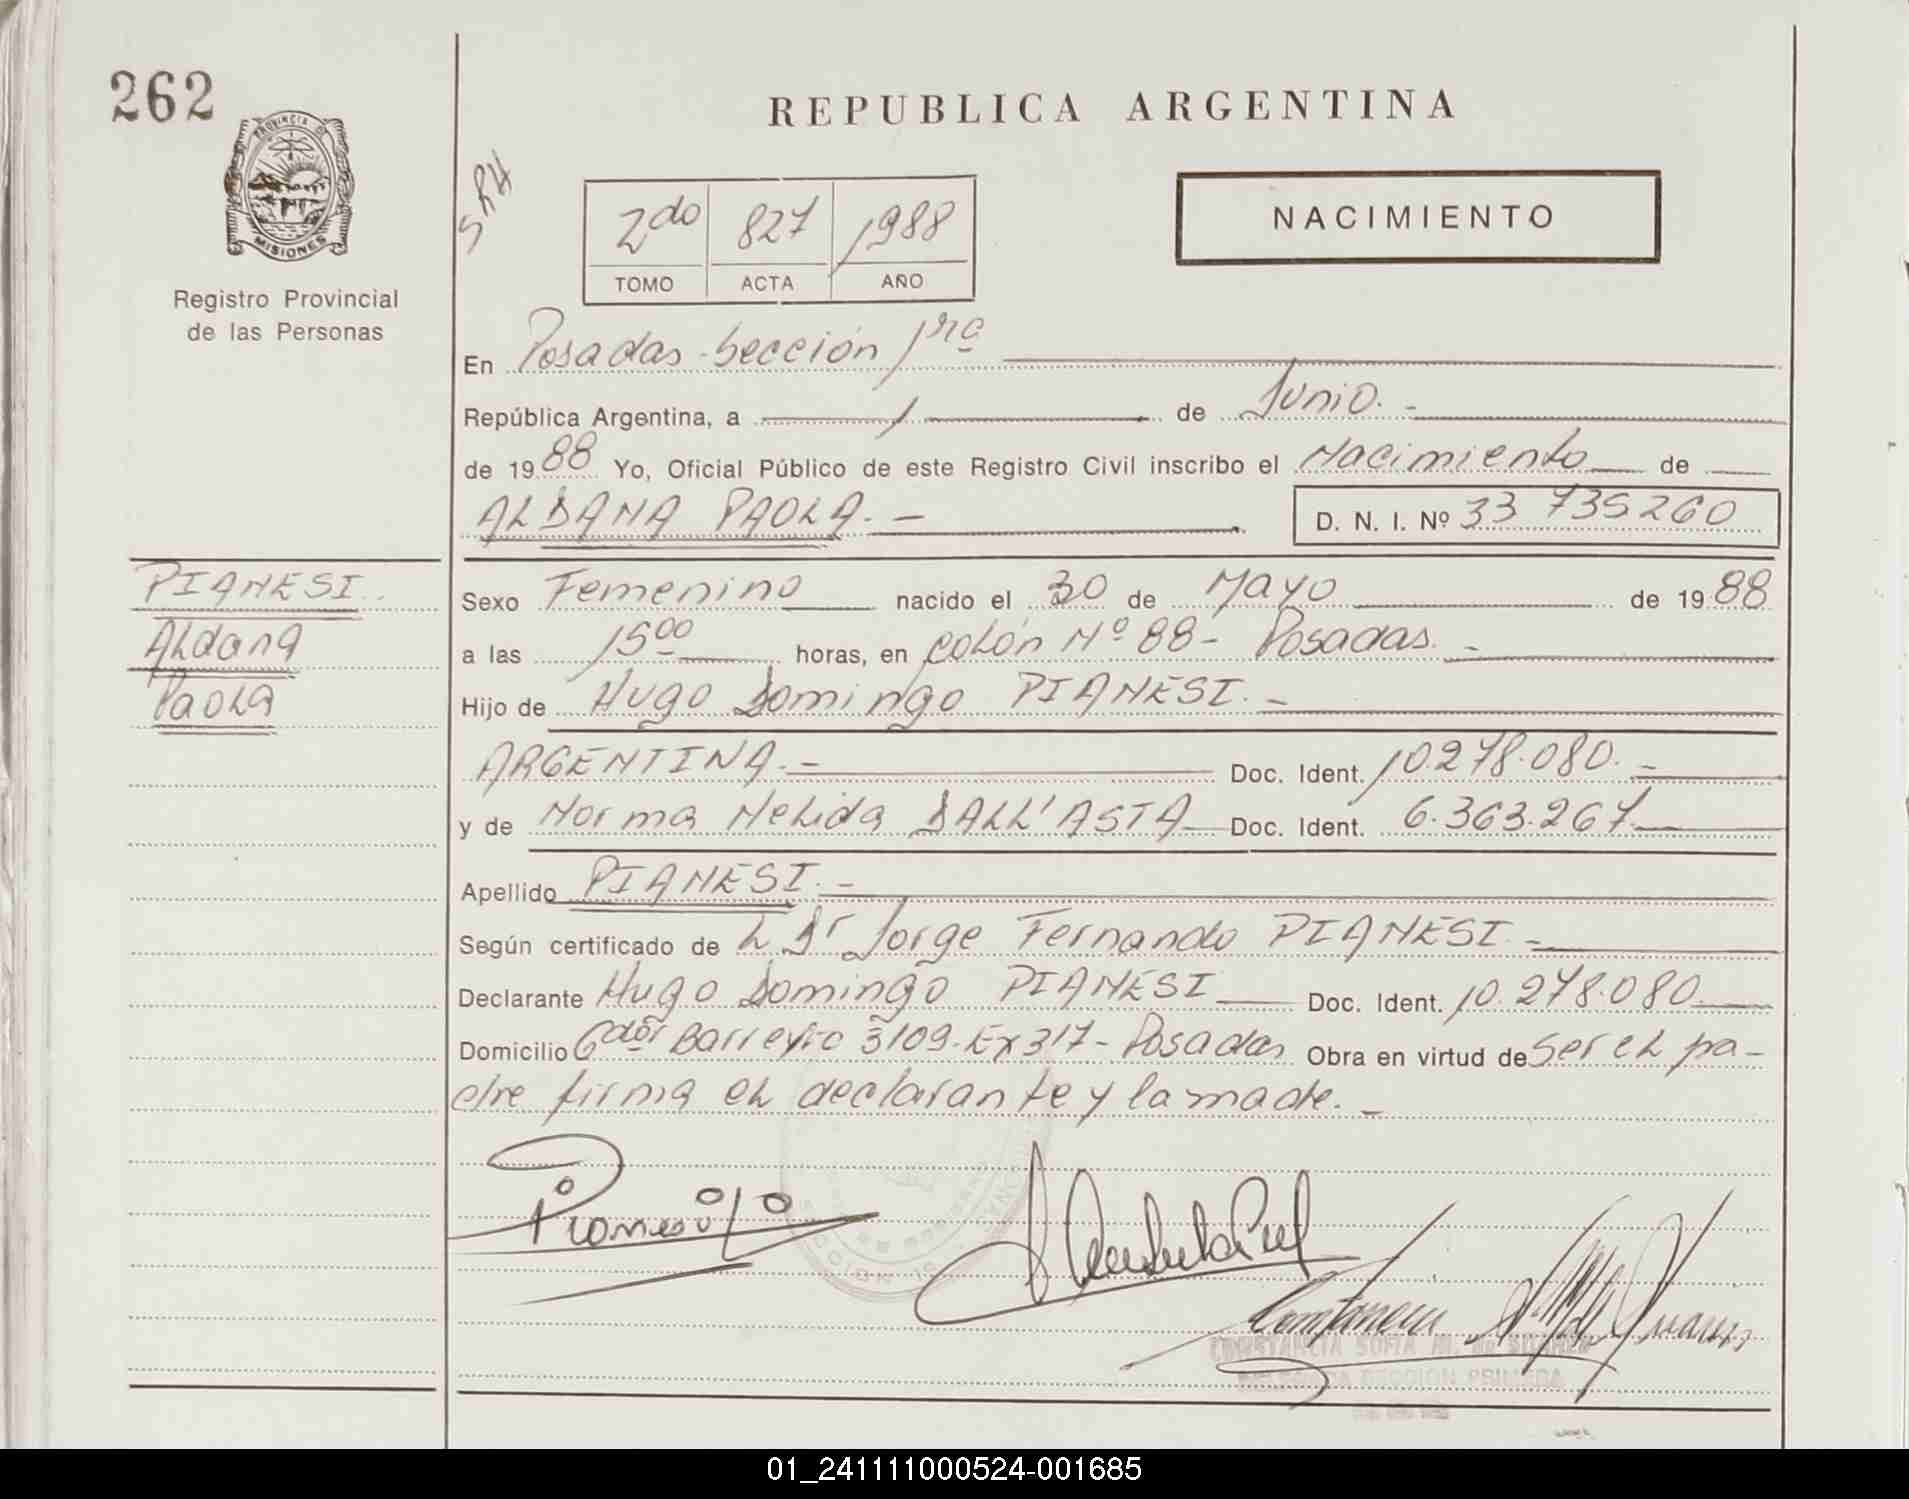 262
REPUBLICA ARGENTINA
PROVINCIA DE
MISIONES
Registro Provincial
de las Personas
SRH
2do 827 1988
TOMO ACTA AÑO
NACIMIENTO
En Posadas - Sección 1ra
República Argentina, a 1 de Junio. -
de 1988 Yo, Oficial Público de este Registro Civil inscribo el Nacimiento de
ALDANA PAOLA. - D. N. I. Nº 33 735260
PIANESI.
Aldana
Paola
Sexo Femenino nacido el 30 de Mayo de 1988
a las 15 00 horas, en Colón Nº 88 - Posadas. -
Hijo de Hugo Domingo PIANESI. -
ARGENTINA. - Doc. Ident. 10.278.080. -
y de Norma Nelida DALL'ASTA Doc. Ident. 6.363.267.
Apellido PIANESI. -
Según certificado de L Dr Jorge Fernando PIANESI. -
Declarante Hugo Domingo PIANESI Doc. Ident. 10.278.080.
Domicilio Gdor Barreyro 3109 - Ex 317 - Posadas Obra en virtud de ser el pa-
dre firma el declarante y la madre. -
SECCION 1
CONSTANCIA SOFIA M. de SUAREZ
DELEGADA SECCION PRIMERA
01_241111000524-001685